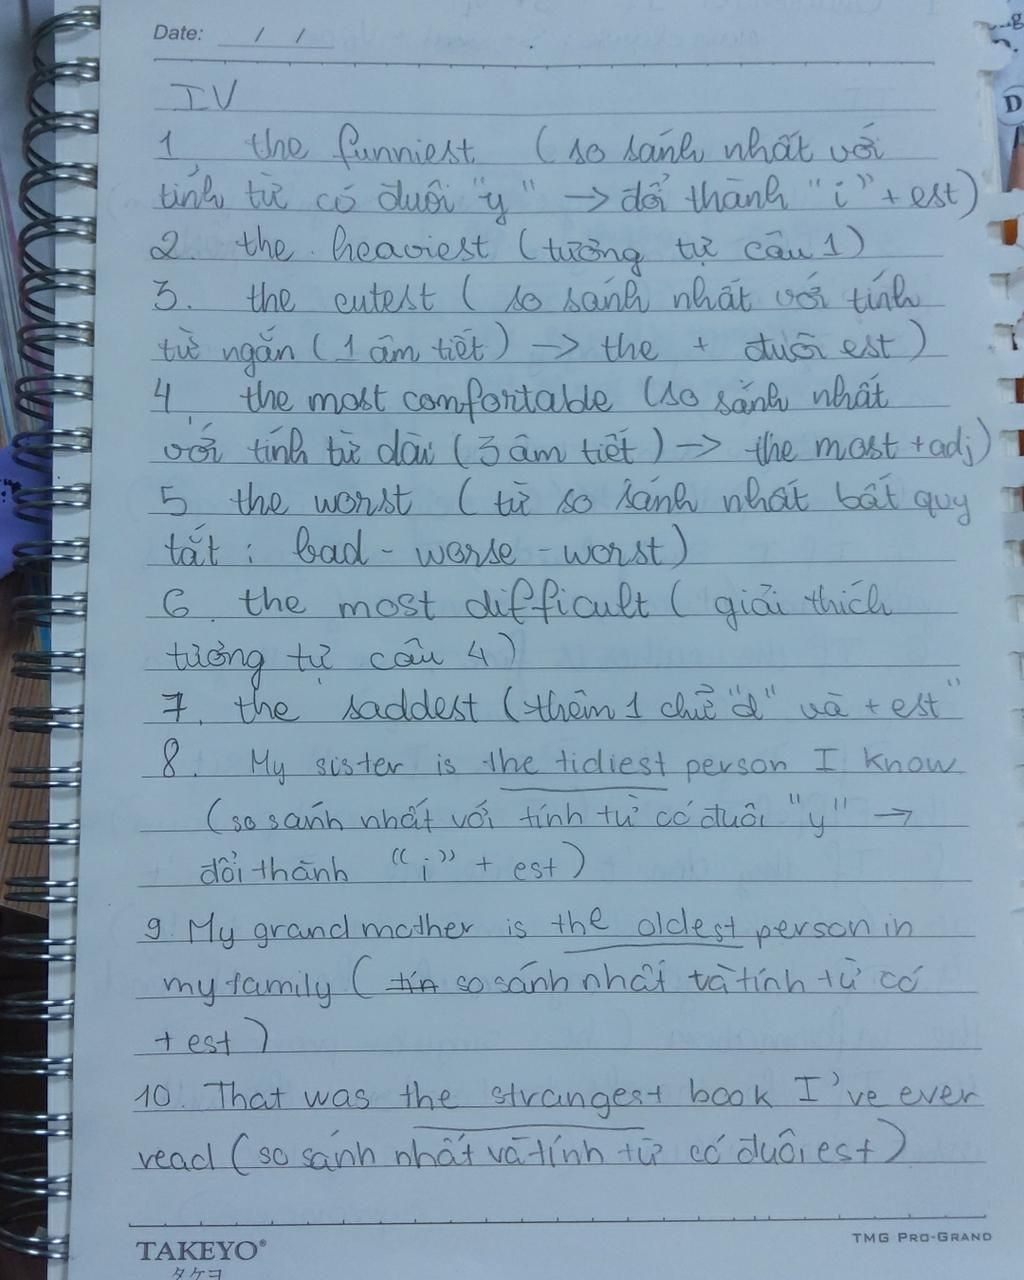 Date: / /
IV
1. the funniest (so sánh nhất với
tính từ có đuôi "y" → đổi thành "i" + est)
2. the heaviest (tương tự câu 1)
3. the cutest (so sánh nhất với tính
từ ngắn (1 âm tiết) → the + đuôi est)
4. the most comfortable (so sánh nhất
với tính từ dài (3 âm tiết) → the most + adj)
5 the worst (từ so sánh nhất bất quy
tắt : bad - worse - worst)
6. the most difficult (giải thích
tương tự câu 4)
7. the saddest (thêm 1 chữ "d" và + est"
8. My sister is the tidiest person I know
(so sánh nhất với tính từ có đuôi "y" →
đổi thành "i" + est)
9. My grandmother is the oldest person in
my family (tín so sánh nhất và tính từ có
+ est)
10. That was the strangest book I've ever
read (so sánh nhất và tính từ có đuôi est)
TAKEYO®
タケヨ
TMG PRO-GRAND
D